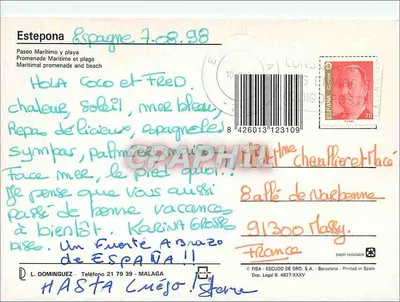 Estepona Espagne 7.08.98
Paseo Marítimo y playa
Promenade Maritime et plage
Maritimal promenade and beach
HOLA COCO et FRED.
chaleur, soleil, mer bleau,
Repas délicieux, espagnoles
sympas, palmiers,
face mer, le pied quoi!
Je pense que vous aussi
passé de bonne vacances
à bientôt. KARINA GROSSES
BISES. Un Fuerte ABrazo
de ESPAÑA!!
HASTA Luégo!
8 426013 123109
ESPAÑA
20
Mme chevllier et Macé
8 allé de Narbonne
91300 Massy.
France
L. DOMINGUEZ - Teléfono 21 79 39 - MALAGA
© FISA - ESCUDO DE ORO, S.A. - Barcelona - Printed in Spain
Dep. Legal B. 4827-XXXV
papel reciclable
GRAPHIII